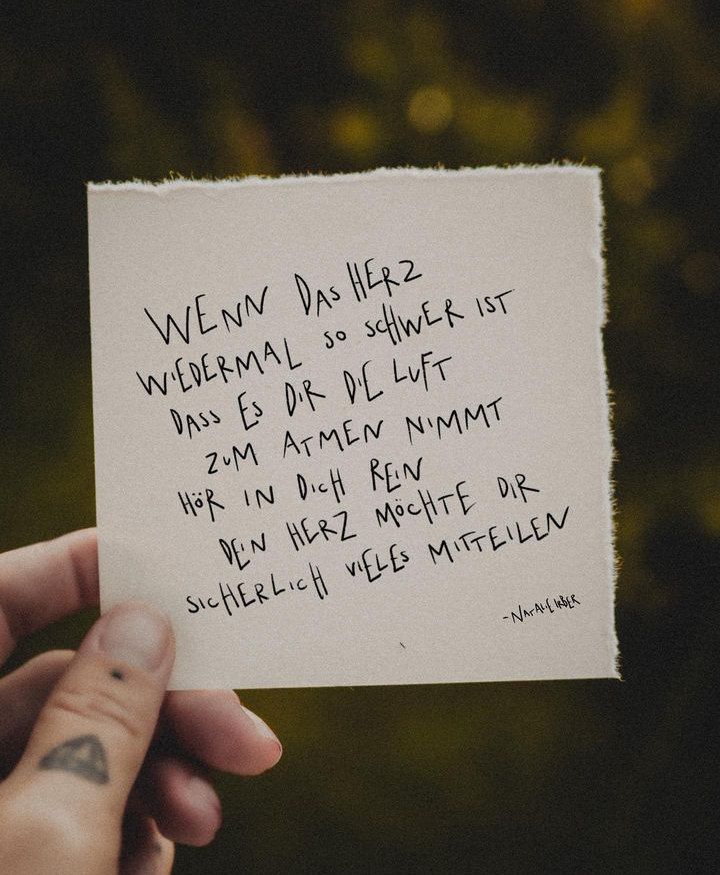 WENN DAS HERZ
WIEDERMAL SO SCHWER IST
DASS ES DIR DIE LUFT
ZUM ATMEN NIMMT
HÖR IN DICH REIN
DEIN HERZ MÖCHTE DIR
SICHERLICH VIELES MITTEILEN
-NATALIE IRBER